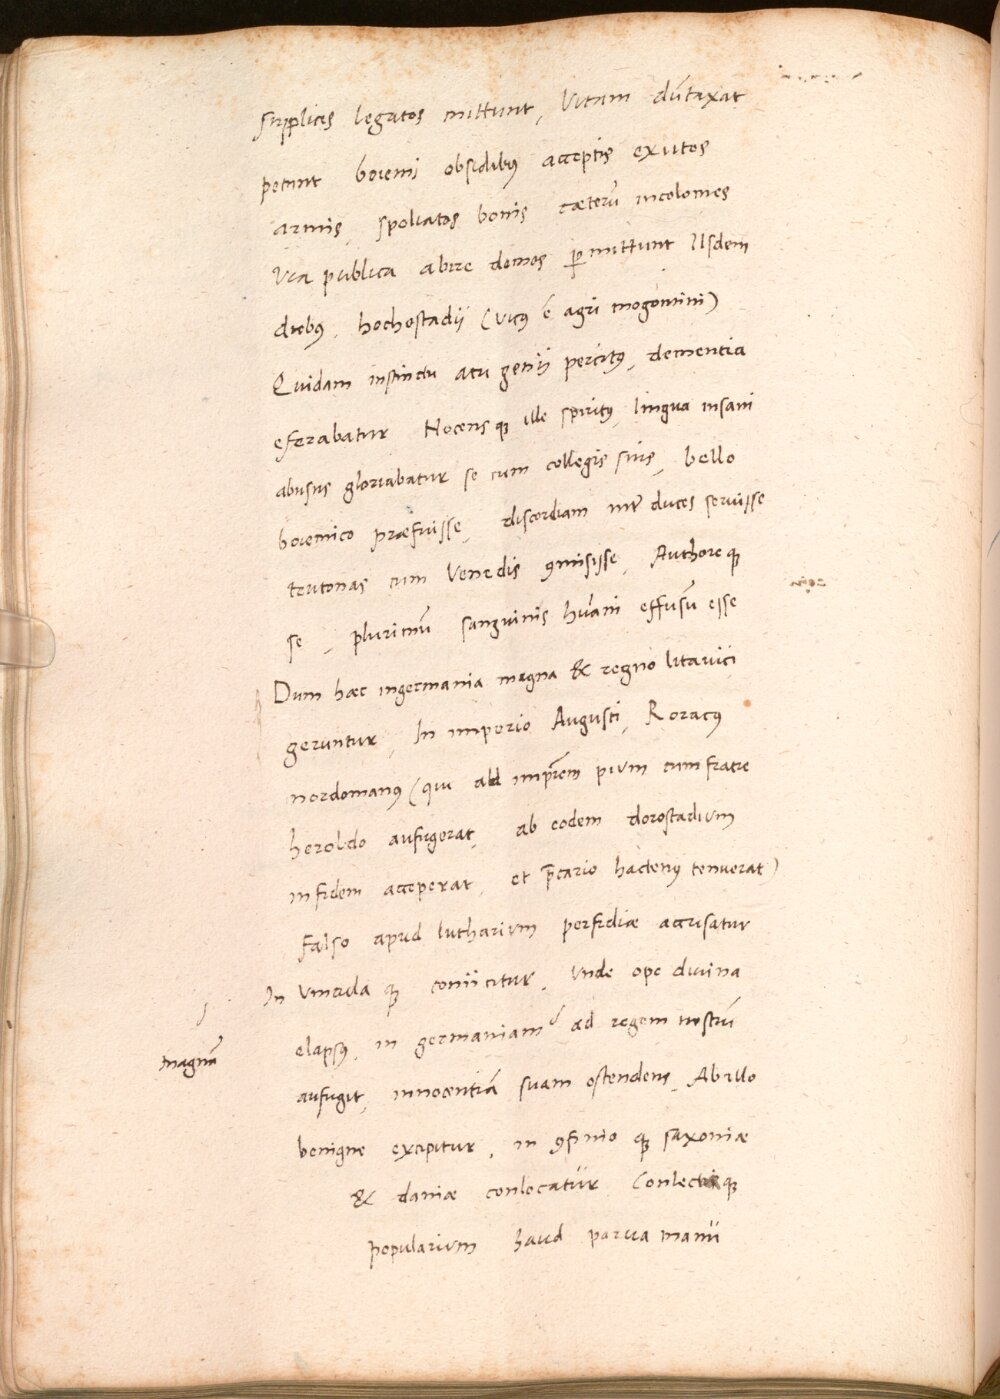 supplices legatos mittunt, Vitam dūtaxat
petunt boiemi obsidibꝰ acceptis exutos
armis, spoliatos bonis cæterū incolomes
Via publica abire domos ꝑmittunt IIsdem
diebꝰ, hochostadii (vicꝰ ē agri mogontini)
Quidam instinctu atri genii percitꝰ, dementia
eferabatur Nocens qꝫ ille spiritꝰ, lingua insani
abusus gloriabatur se cum collegis suis, bello
boiemico præfuisse, discordiam inter duces seruisse
teutonas cum Venedis ꝯmisisse, Authore qꝫ
se, plurimū sanguinis hūani effusū esse
Dum hæc ingermania magna & regno litauici
geruntur, In imperio Augusti, Roracꝰ
nordomanꝰ (qui ad imp̄rem pium cum fratre
heroldo aufugerat, ab eodem dorostadium
infidem acceperat, et p̄cario hactenꝰ tenuerat)
falso apud lutharium perfidiæ accusatur
In Vincula qꝫ coniicitur, Vnde ope diuina
elapsꝰ, in germaniam ad regem nostrū
magnā
aufugit, innocentiā suam ostendens, Ab illo
benigne excipitur, in ꝯfinio qꝫ saxoniæ
& daniæ conlocatur Conlectisqꝫ
popularium haud parua manu